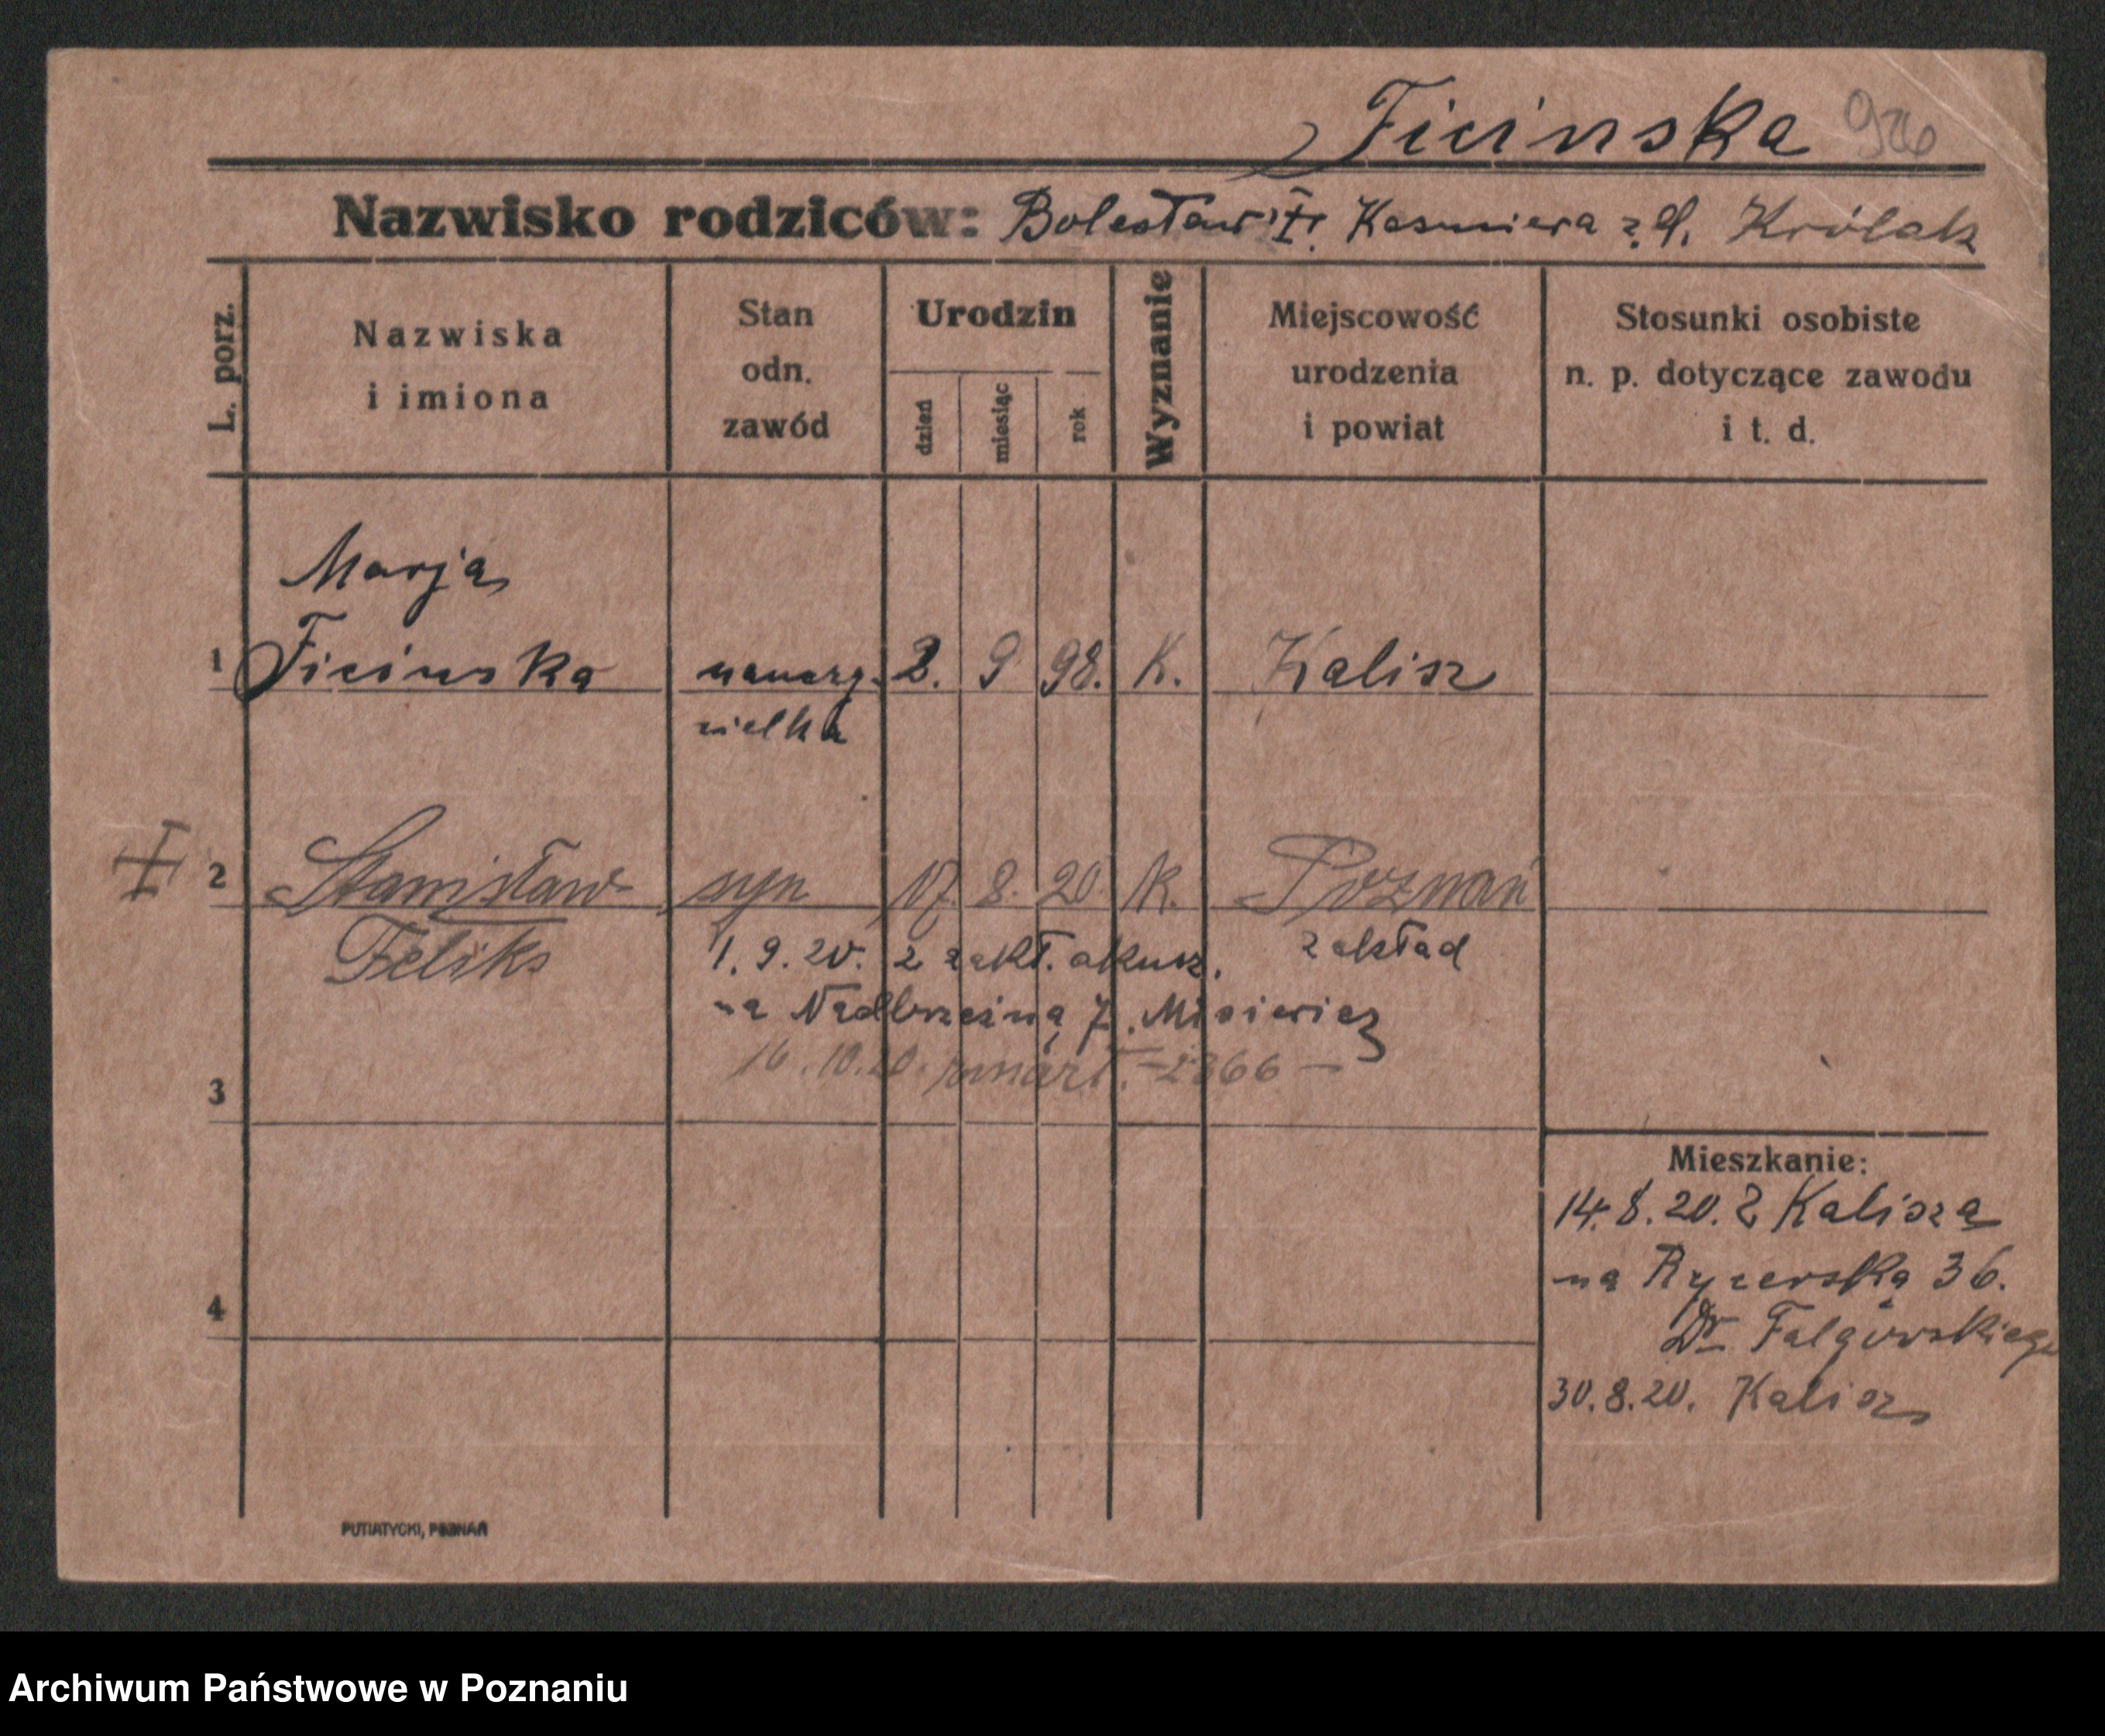 Ficinska 926
Nazwisko rodziców: Bolesław F. Kasmiera z d. Królak
L. porz.
Nazwiska
i imiona
Stan
odn.
zawód
Urodzin
dzień
miesiąc
rok
Wyznanie
Miejscowość
urodzenia
i powiat
Stosunki osobiste
n. p. dotyczące zawodu
i t. d.
Marja
1 Ficinska nauczy- 2. 9 98. K. Kalisz
cielka
2 Stanisław syn 17. 8. 20. K. Poznań
Feliks
1. 9. 20. z zakł. akusz. zakład
na Nadbrzeżną 7. Misiewicz
16. 10. 20. zmarł. - 2366 -
3
Mieszkanie:
14. 8. 20. z Kalisza
na Rycerską 36.
Dr Falgowskiego
30. 8. 20. Kalisz
4
PUTIATYCKI, POZNAŃ
Archiwum Państwowe w Poznaniu